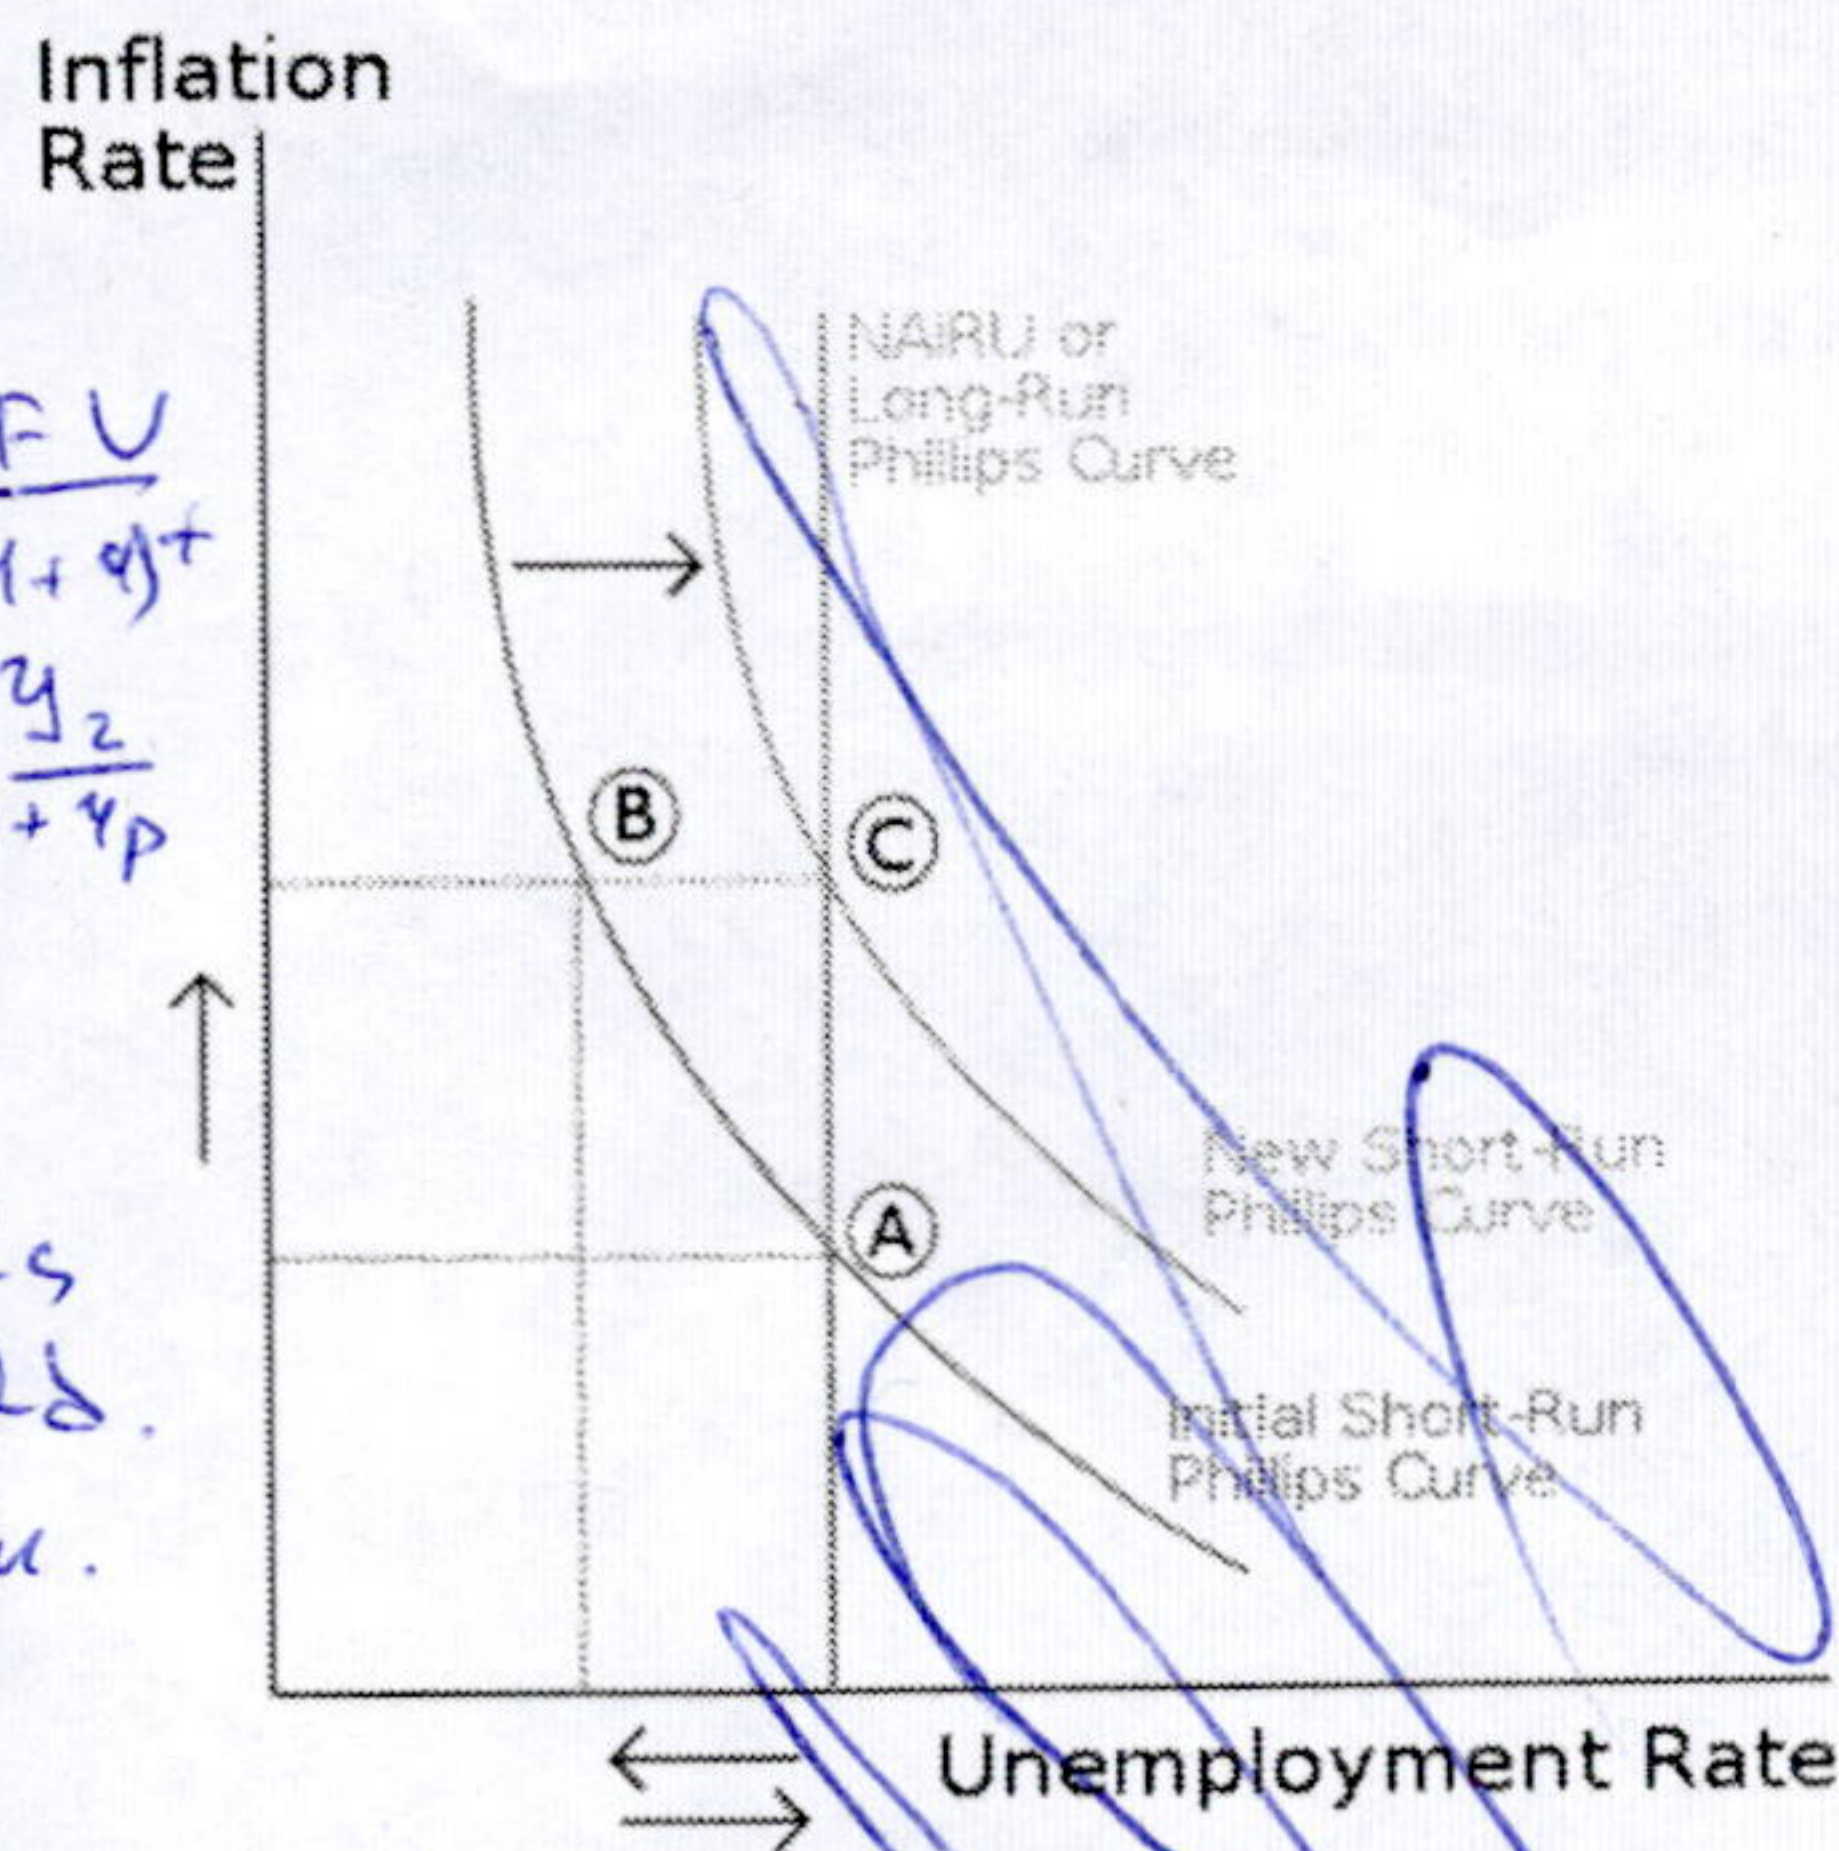 Inflation
Rate
NAIRU or
Long-Run
Phillips Curve
F V
y2
B
C
New Short-Run
Phillips Curve
A
Initial Short-Run
Phillips Curve
Unemployment Rate